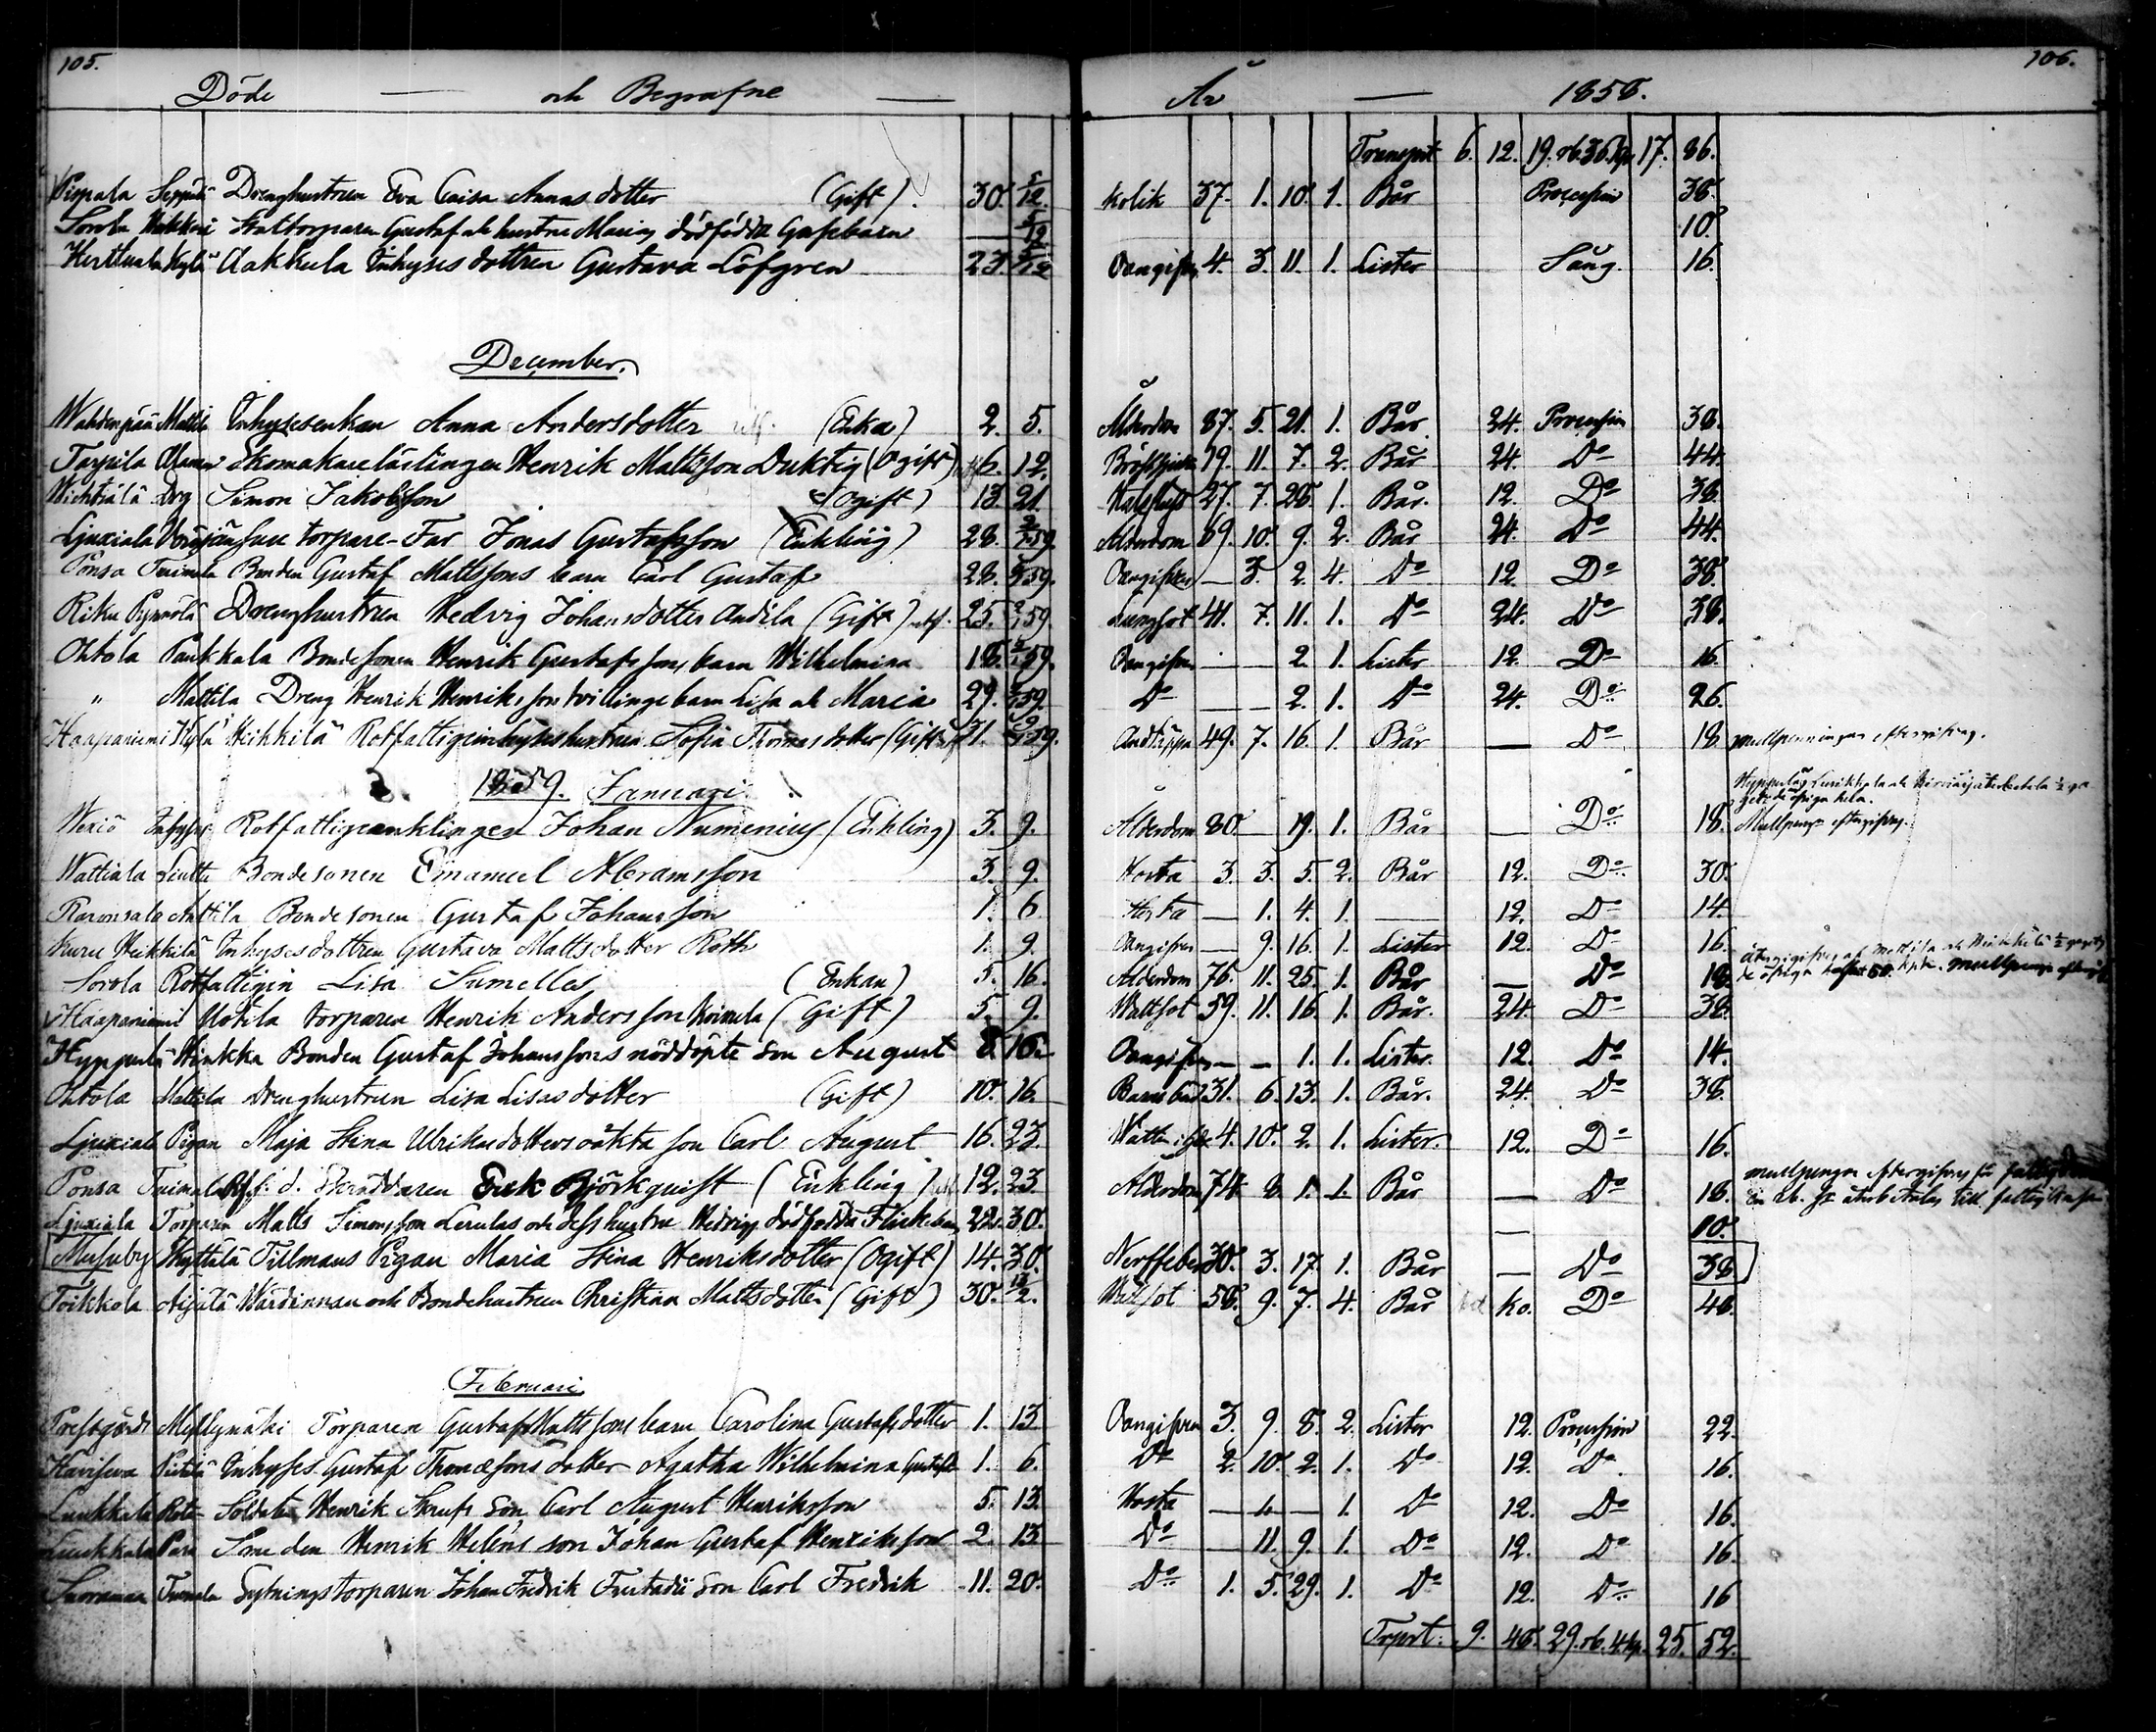 105. 106.
Döde — och Begrafne — År — 1858.
Transprt 6. 12. 19. rb. 36. kp. 17. 86.
Pispala Seppälä Drenghustrun Eva Caisa Annas dotter (Gift). 30. 5/12. Kolik 37. 1. 10. 1. Bår Procession 38.
Sorola Stattorparen Gustaf och hustrus Marias dödfödda Gossebarn — 5/12 10.
Herttuala Kylä Aakkula Inhyses dottren Gustava Löfgren 23. Oangifven 4. 3. 11. 1. Lister Sång. 16.
December.
Wahdenpää Mattila Inhysesenkan Anna Andersdotter (Enka) 2. 5. Ålderdom 87. 5. 21. 1. Bår. 24. Procession 38.
Tarpila Skomakarelärlingen Henrik Mattsson Duktig (Ogift) 6. 12. 19. 11. 7. 2. Bår 24. Do 44.
Dreg Simon Jakobsson (Ogift) 13. 21. 27. 7. 28. 1. Bår. 12. Do 38.
Ljuxiala torpare-Far Jonas Gustafsson (Enkling) 28. Ålderdom 69. 10. 9. 2. Bår 24. Do 44.
Ponsa Tuimala Bonden Gustaf Mattssons barn Carl Gustaf 28. 59. Oangifven — 3. 2. 4. Do 12 Do 38.
Riku Pynnölä Drenghustrun Hedvig Johansdotter Andila (Gift) 25. 59. Lungsot 41. 7. 11. 1. Do 24. Do 38.
Ohtola Paukkala Bondesonen Henrik Gustafssons barn Wilhelmina 18. 59. Oangifven — — 2. 1. Lister 12. Do 16.
" Mattila Dreng Henrik Henrikssons tvillingebarn Lisa och Maria 29. 59. Do — — 2. 1. Do 24. Do 26.
Haapaniemi Kylä Heikkilä Rotfattiginhyseshustrun Sofia Thomas dotter (Gift) 31. 59. Andtäppa 49. 7. 16. 1. Bår — Do 18. mullpenningar eftergifvas.
1859. Januari.
Wexiö Inhyses Rotfattigeenklingen Johan Numenius (Enkling) 3. 9. Ålderdom 80. — 19. 1. Bår — Do 18. Mullpengn eftergifvas.
Wattiala Liutte Bondesonen Emanuel Abramsson 3. 9. Hosta 3. 3. 5. 2. Bår 12. Do 30.
Raronsalo Anttila Bondesonen Gustaf Johansson 1. 6. Hosta — 1. 4. 1. — 12. Do 14.
Kuru Heikkilä Inhysesdottren Gustava Mattsdotter Roth 1. 9. Oangifven — 9. 16. 1. Lister 12. Do 16.
Sorola Rotfattigin Lisa Sumelles (Enkan) 5. 16. Ålderdom 76. 11. 25. 1. Bår — Do 18.
Haapaniemi Uotila torparen Henrik Andersson Koimula (Gift) 5. 9. Wattsot 59. 11. 16. 1. Bår. 24. Do 38.
Hyppärilä Hinkka Bonden Gustaf Johanssons nöddöpte son August 8. 16. Oangifven — — 1. 1. Lister. 12. Do 14.
Ohtola Mattila Drenghustrun Lisa Lisasdotter (Gift) 10. 16. Barnsbörd 31. 6. 13. 1. Bår. 24. Do 38.
Ljuxiala Pigan Maja Stina Ulrikasdotters oäkta son Carl August 16. 23. 4. 10. 2. 1. Lister. 12. Do 16.
Ponsa Tuimala f. d. Skräddaren Erik Björkquist (Enkling) 12. 23 Ålderdom 74. 8 1. 1. Bår — Do 18.
Ljuxiala Torparen Matts Simonsson Lerulas och dess hustru Hedvigs dödfödda Flickebarn 22. 30. — 10.
Musuby Skyttälä Tillmans Pigan Maria Stina Henriksdotter (Ogift) 14. 30. Nerffeber 30. 3. 17. 1. Bår — Do 38
Toikkola Äijälä Wärdinnan och Bondehustrun Christina Mattsdotter (Gift) 30. 13/2. Wattsot 58. 9. 7. 4. Bår ko. Do 48.
Februari
Prestgårds Myllymäki Torparen Gustaf Mattssons barn Carolina Gustafsdotter 1. 13. Oangifven 3. 9. 8. 2. Lister 12. Procession 22.
Havisva Inhyses Gustaf Thomæsons dotter Agatha Wilhelmina Gustafs 1. 6. Do 2. 10. 2. 1. Do 12. Do 16.
Liukkala Rote Soldaten Henrik Skrufs son Carl August Henriksson 5. 13. Hosta — — 1. Do 12. Do 16.
Liukkala Para Smeden Henrik Helens son Johan Gustaf Henriksson 2. 13. Do — 11. 9. 1. Do 12. Do 16.
Suoramaa Tuomala Sytningstorparen Johan Fredrik Frustadii son Carl Fredrik 11. 20. Do 1. 5. 29. 1. Do 12. Do 16
Trsprt: 9. 48. 29. rb. 4 kp. 25. 52.